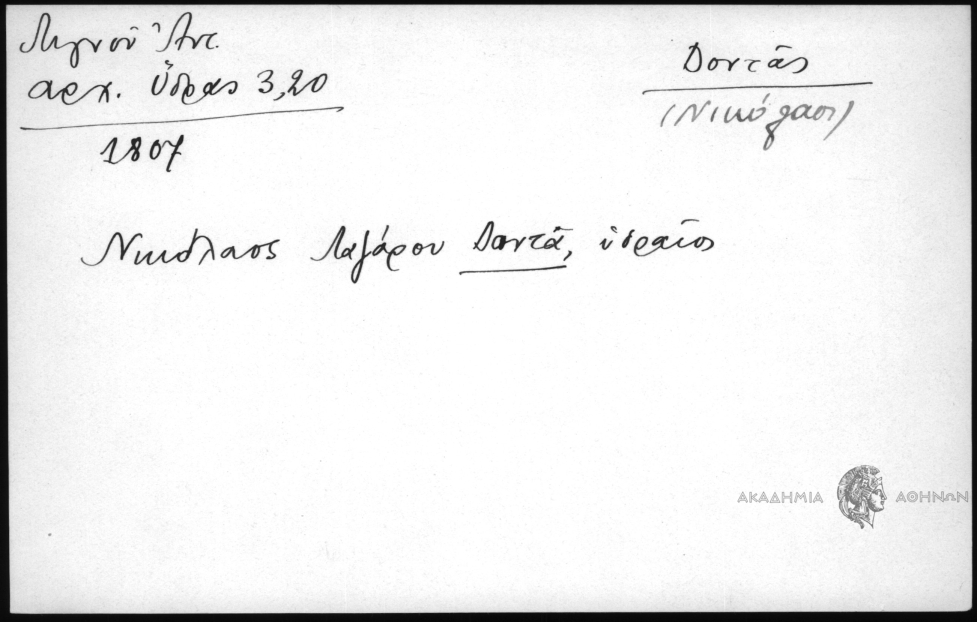 Λιγνοῦ Ἀντ.
αρχ. Ὕδρας 3,20
1807
Δοντᾶς
(Νικόλαος)
Νικόλαος Λαζάρου Δοντᾶ, ὑδραῖος
ΑΚΑΔΗΜΙΑ ΑΘΗΝΩΝ